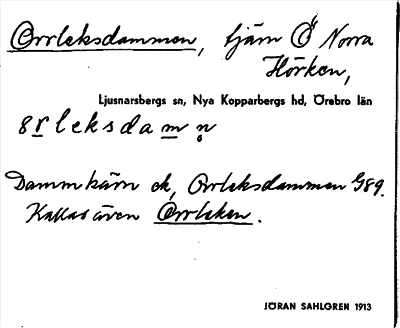 Orrleksdammen, tjärn Ö Norra
Hörken,
Ljusnarsbergs sn, Nya Kopparbergs hd, Örebro län
Dammtärn ek, Orrleksdammen G89.
Kallas även Orrleken.
JÖRAN SAHLGREN 1913